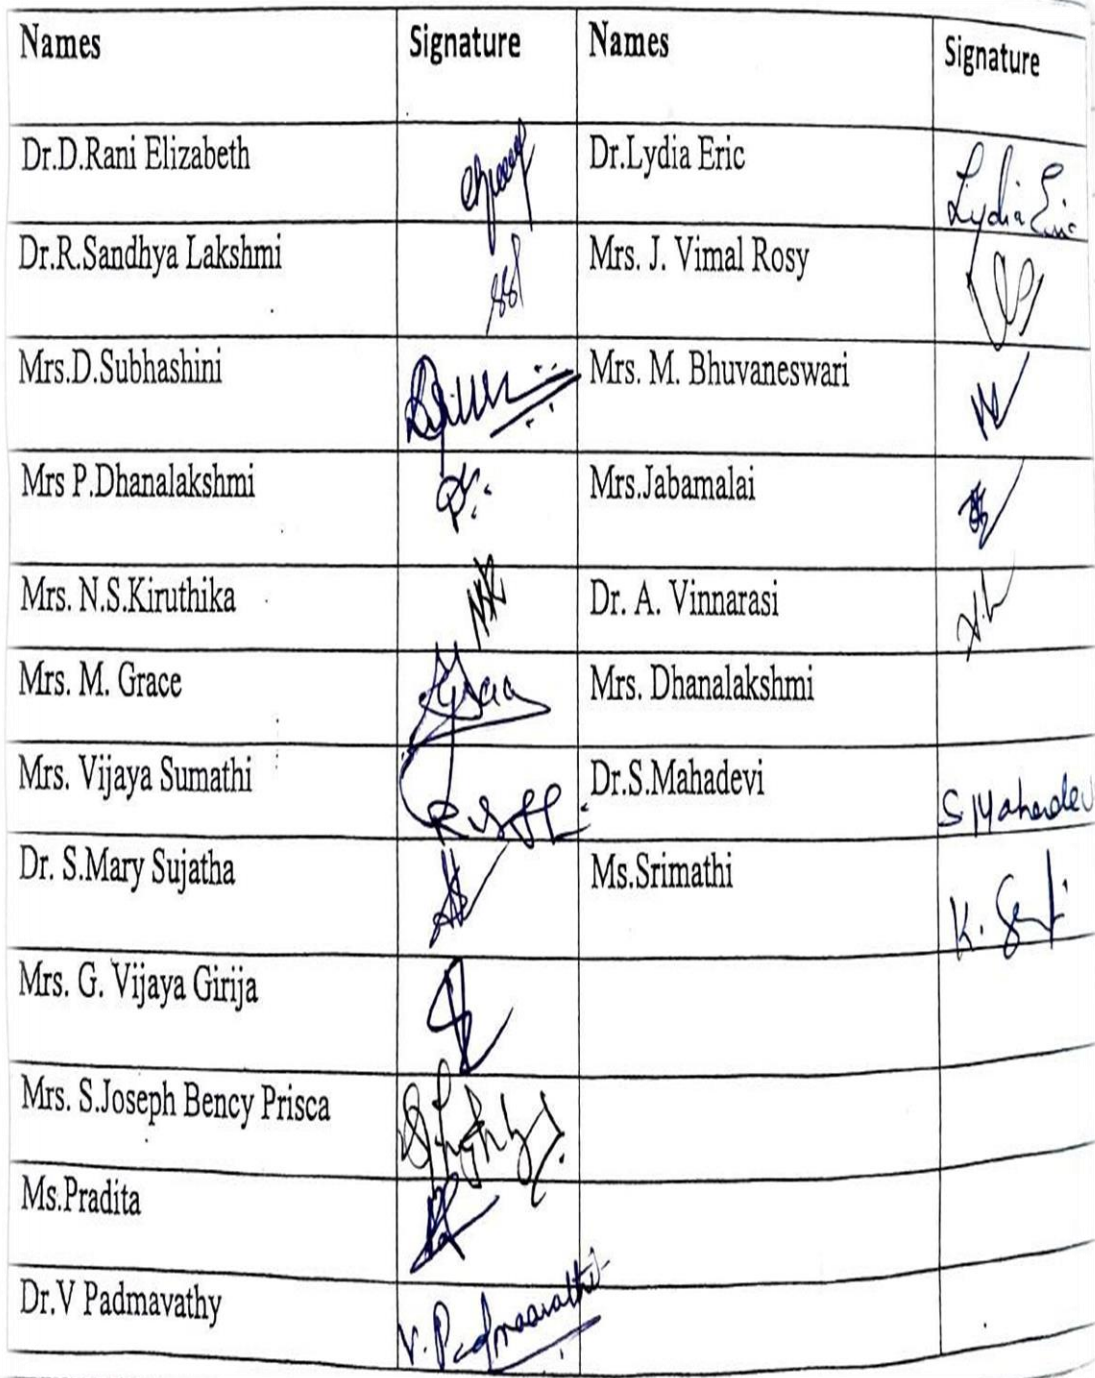 Names Signature Names Signature
Dr.D.Rani Elizabeth Dr.Lydia Eric Lydia Eric
Dr.R.Sandhya Lakshmi Mrs. J. Vimal Rosy
Mrs.D.Subhashini Mrs. M. Bhuvaneswari
Mrs P.Dhanalakshmi Mrs.Jabamalai
Mrs. N.S.Kiruthika Dr. A. Vinnarasi
Mrs. M. Grace Mrs. Dhanalakshmi
Mrs. Vijaya Sumathi Dr.S.Mahadevi S Mahadev
Dr. S.Mary Sujatha Ms.Srimathi K.
Mrs. G. Vijaya Girija
Mrs. S.Joseph Bency Prisca
Ms.Pradita
Dr.V Padmavathy V. Padmaavathi